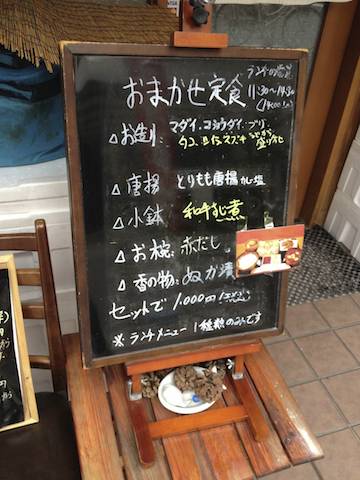 ランチの営業
おまかせ定食
11:30〜14:30
(14:00 L.O)
△お造り: マダイ.コショウダイ.ブリ.
タコ
盛り合せ
△唐揚 とりもも唐揚
△小鉢 和牛すじ煮
△お椀: 赤だし
△香の物: ぬか漬
セットで 1,000円
※ランチメニュー 1種類のみです
円